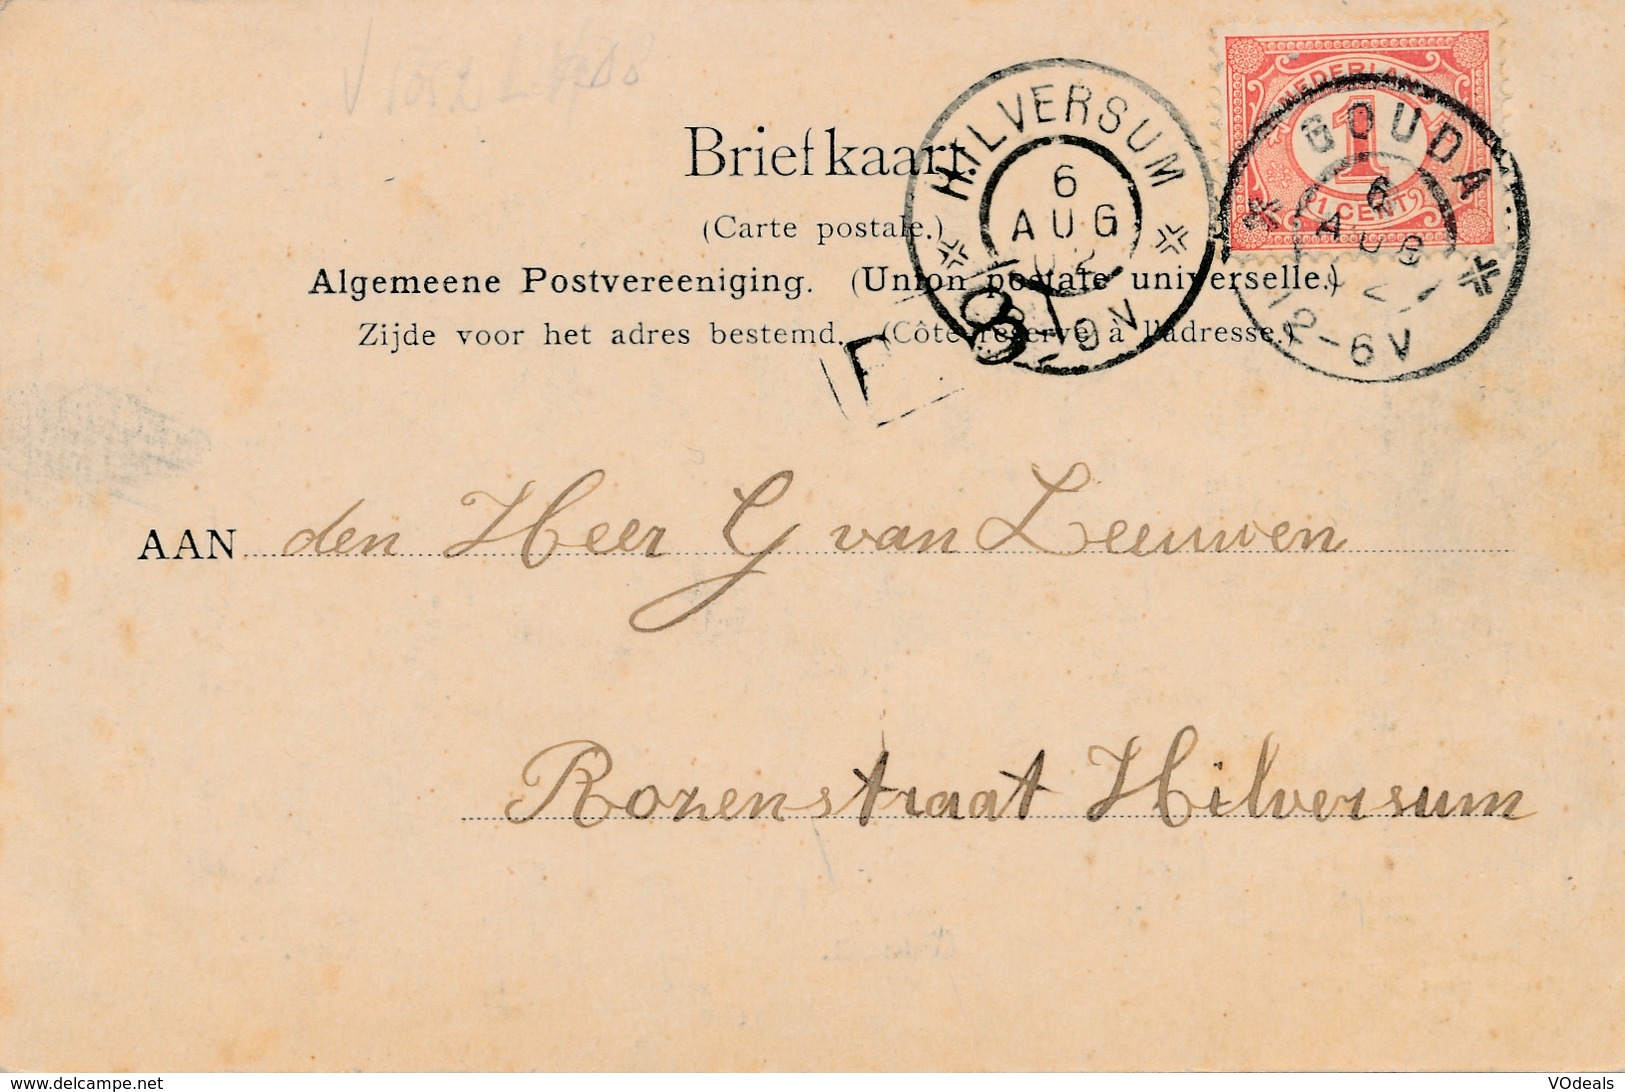 NEDERLAND
1
1 CENT
GOUDA
6
AUG
12-6V
HILVERSUM
6
AUG
02
Briefkaart
(Carte postale.)
Algemeene Postvereeniging. (Union postale universelle.)
Zijde voor het adres bestemd. (Côté réservé à l'adresse.)
AAN den Heer G van Leeuwen
Rozenstraat Hilversum
www.delcampe.net
VOdeals